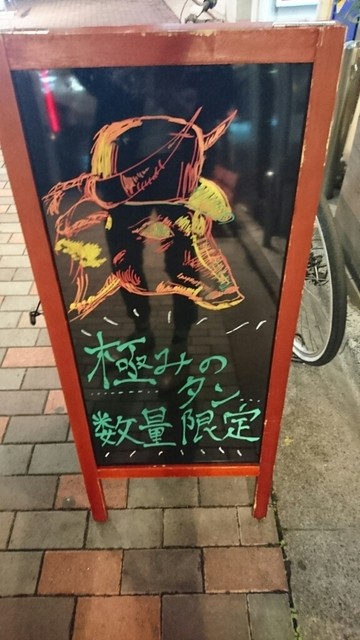 極みの
タン…
数量限定